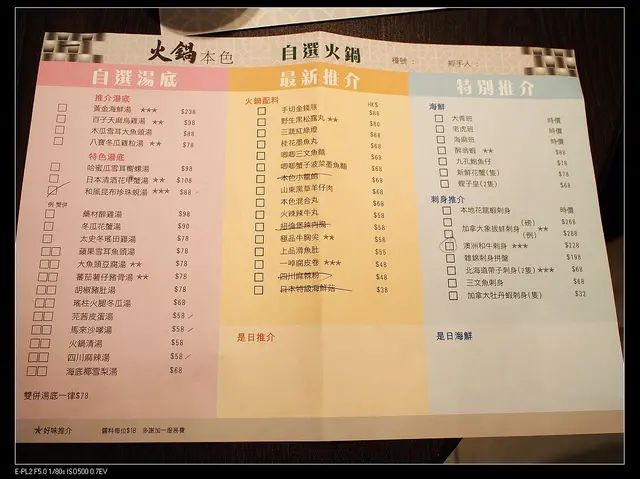 火鍋本色
自選火鍋
檯號：
經手人：
自選湯底
推介湯底
黃金海鮮湯 ★★★ $238
百子天麻烏雞湯 ★★ $98
木瓜雪耳大魚頭湯 $88
八寶冬瓜雞粒湯 ★★ $78
特色湯底
哈蜜瓜雪耳響螺湯 $98
日本清酒花甲蟹湯 ★★ $108
和風昆布珍珠蜆湯 ★★★ $88
例 雙併
藥材醉雞湯 $98
冬瓜花蟹湯 $90
太史冬瑤田雞湯 $78
蘋果雪耳魚頭湯 $78
大魚頭豆腐湯 ★★ $78
蕃茄薯仔豬骨湯 ★★ $78
胡椒豬肚湯 $78
瑤柱火腿冬瓜湯 $68
芫茜皮蛋湯 $58
馬來沙嗲湯 $58
火鍋清湯 $58
四川麻辣湯 $58
海底椰雪梨湯 $68
雙併湯底一律$78
最新推介
火鍋配料 HK$
手切金錢𦟌 $88
野生黑松露丸 ★★ $60
三蔬紅綠燈
桂花墨魚丸
唧唧三文魚麵
唧唧蟹子菠菜墨魚麵
本色水餃
山東黑草羊仔肉
本色混合丸
火辣辣牛丸 $58
極品牛胸尖 ★★ $58
上品滑魚肚 $55
一啖腐皮卷 ★★★ $48
四川麻辣粉 $48
日本特級海鮮菇 $38
是日推介
特別推介
海鮮
大青班 時價
老虎班 時價
海麻班 時價
醉翁蝦 ★★ $88
九孔鮑魚仔 $78
新鮮花蟹(隻) $78
蟶子皇(2隻) $68
刺身推介
本地花龍蝦刺身 時價
加拿大象拔蚌刺身 ★★ (磅) $268
(例) $288
澳洲和牛刺身 ★★★ $228
雜錦刺身拼盤 $198
北海道帶子刺身(2隻) ★★★ $68
三文魚刺身 $68
加拿大牡丹蝦刺身(隻) $32
是日海鮮
★好味推介
醬料每位$18 多謝加一服務費
E-PL2 F5.0 1/80s ISO500 0.7EV